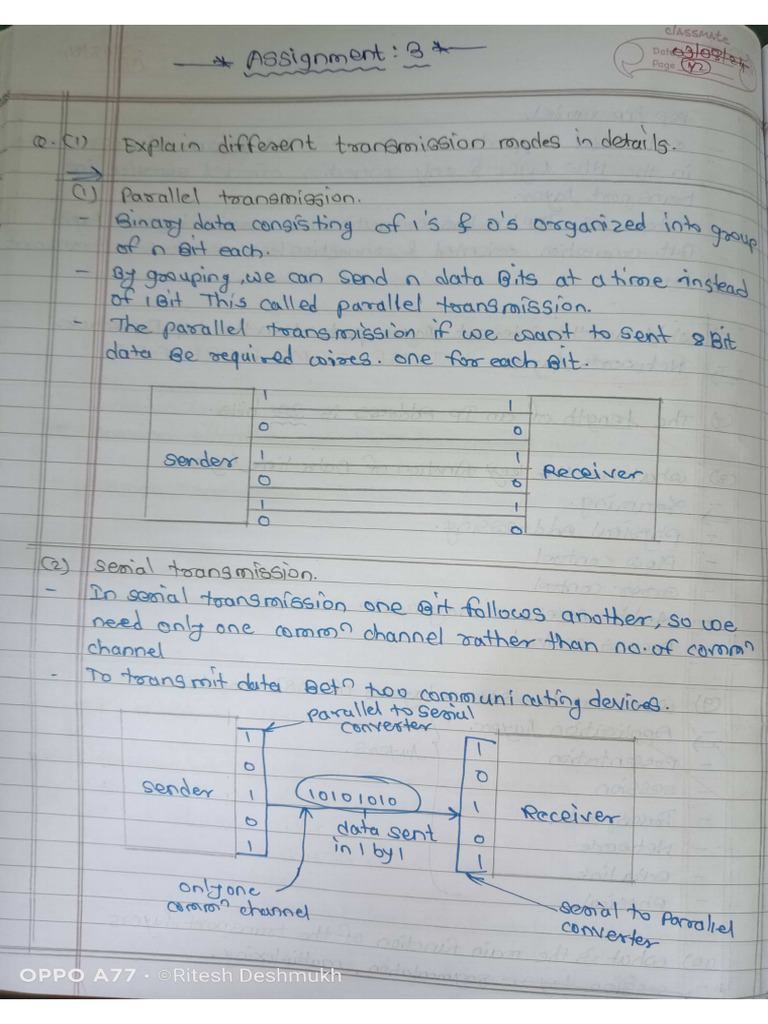 classmate
Date 03/08/24
Page 1/2
Assignment : 3
Q.(1) Explain different transmission modes in details.
(1) Parallel transmission.
- Binary data consisting of 1's & 0's organized into group
of n Bit each.
- By grouping, we can send n data Bits at a time instead
of 1 Bit This called parallel transmission.
- The parallel transmission if we want to sent 8 Bit
data Be required wires. one for each Bit.
1 1
0 0
Sender 1 1 Receiver
0 0
1 1
0 0
(2) Serial transmission.
- In serial transmission one Bit follows another, so we
need only one commⁿ channel rather than no. of commⁿ
channel
- To transmit data Betⁿ two communicating devices.
parallel to serial
converter
1 1
0 0
Sender 1 10101010 1 Receiver
0 data sent 0
1 in 1 by 1 1
only one
commⁿ channel
serial to Parallel
converter
OPPO A77 · ©Ritesh Deshmukh